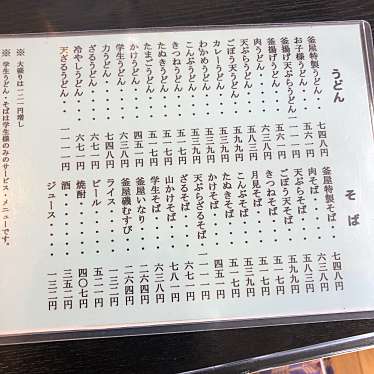 うどん
釜屋特製うどん・・七四八円
お子様うどん・・・
釜揚げ天ぷらうどん・
釜揚げうどん・・・
肉うどん・・・・六三八円
天ぷらうどん・・・五八三円
ごぼう天うどん・・五九九円
カレーうどん・・・五九九円
わかめうどん・・・五三九円
こんぶうどん・・・五三九円
きつねうどん・・・五一七円
たぬきうどん・・・五一七円
たまごうどん・・・五一七円
かけうどん・・・・四五一円
学生うどん・・・・六三八円
力うどん・・・・・七四八円
ざるうどん・・・・六七一円
冷やしうどん・・・六七一円
天ざるうどん・・一一一一円
そば
釜屋特製そば・・・七四八円
肉そば・・・・・・六三八円
天ぷらそば・・・・五八三円
ごぼう天そば・・・五九九円
きつねそば・・・・五一七円
月見そば・・・・・五一七円
こんぶそば・・・・五三九円
たぬきそば・・・・五一七円
かけそば・・・・・四五一円
天ぷらざるそば・一一一一円
ざるそば・・・・・六七一円
山かけそば・・・・七八一円
学生そば・・・・・六三八円
釜屋いなり・・・・二六四円
釜屋磯むすび・・・二六四円
ライス・・・・・・一三二円
ビール・・・・・・
焼酎・・・・・・・四〇七円
酒・・・・・・・・三五二円
ジュース・・・・・一三二円
※ 大盛りは一一〇円増し
※ 学生うどん・そばは学生様のみのサービス・メニューです。